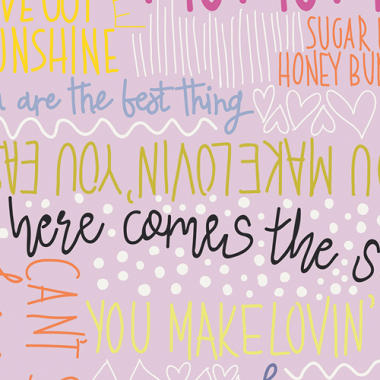 SUGAR
UNSHINE
HONEY BU
are the best thing
U MAKE LOVIN', YOU EA
here comes the s
CAN'T
YOU MAKE LOVIN'